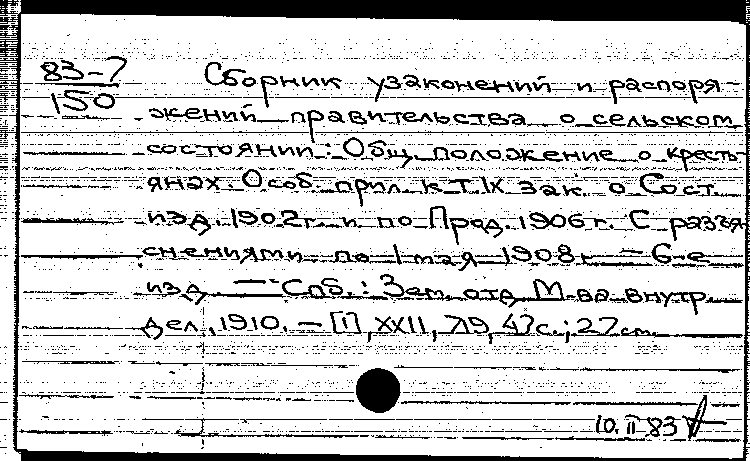 83-7
150
Сборник узаконений и распоря-
жений правительства о сельском
состоянии: Общ. положение о кресть-
янах. Особ. прил. к т. IX зак. о Сост.
изд. 1902 г. и по Прод. 1906 г. С разъя-
снениями по 1 мая 1908 г. — 6-е
изд. — Спб.: Зем. отд. М-ва внутр.
дел, 1910. — [1], XXII, 719, 47 с.; 27 см.
10. II 83